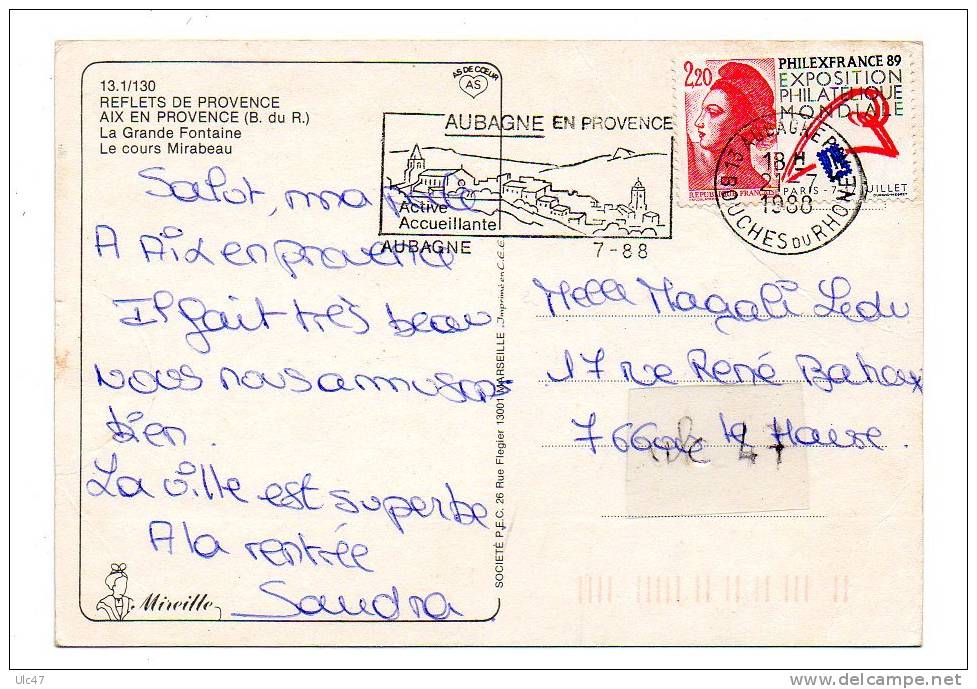 13.1/130
REFLETS DE PROVENCE
AIX EN PROVENCE (B. du R.)
La Grande Fontaine
Le cours Mirabeau
AS DE CŒUR
AS
AUBAGNE EN PROVENCE
Active
Accueillante
AUBAGNE 7-88
2,20
REPUBLIQUE FRANÇAISE
PHILEXFRANCE 89
EXPOSITION
PHILATELIQUE
MONDIALE
PARIS - 7- JUILLET
13 AUBAGNE PPAL
18 H
21 - 7
1988
BOUCHES DU RHONE
Salut, ma
A Aix en provence
Il fait très beau
nous nous amusons
bien.
La ville est superbe.
A la rentrée
Sandra
Mireille
SOCIETE P.E.C. 26 Rue Flegier 13001 MARSEILLE. Imprimé en C.E.E.
Melle Magali Ledu
17 rue René
le Havre.
Ulc47
delcampe.net